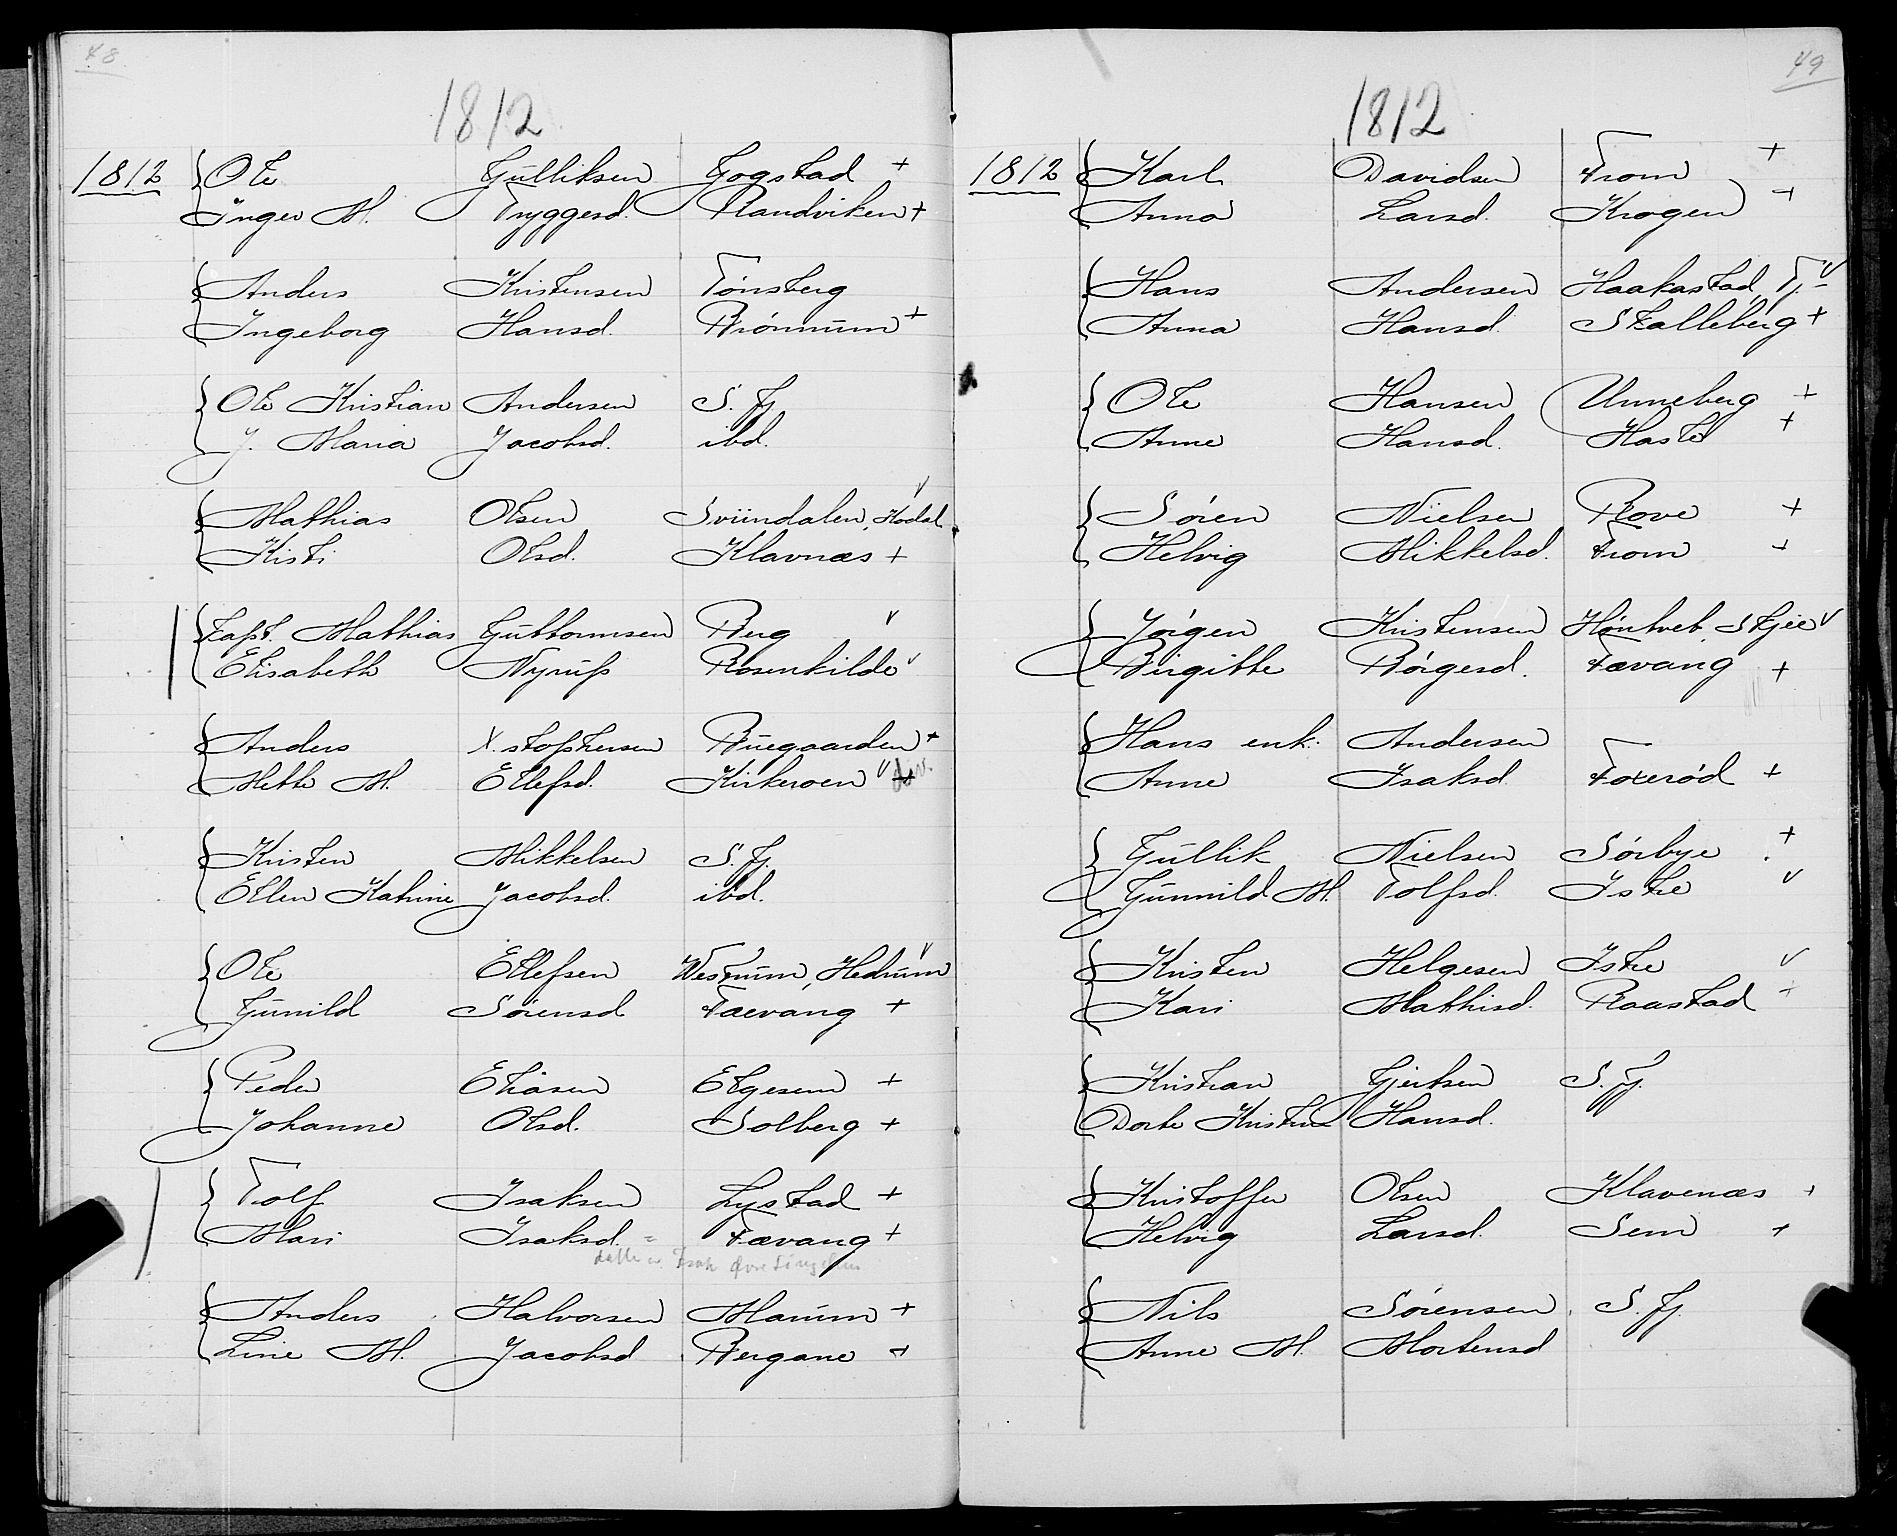 48
1812
1812 Ole Gulliksen Gogstad +
Inger M. Tryggesd. Randviken +
Anders Kristensen Tönsberg
Ingeborg Hansd. Brönnum +
Ole Kristian Andersen S. Fj.
J. Maria Jacobsd. ibd.
Mathias Olsen Sviindalen, Kodal v
Kisti Olsd. Klavnæs +
Kapt. Mathias Guttormsen Berg v
Elisabeth Nyrup Rosenkilde v
Anders X.stophersen Buegaarden +
Mette M. Ellefsd. Kirkeroen v
Kristen Mikkelsen S. Fj.
Ellen Katrine Jacobsd. ibd.
Ole Ellefsen Westrum, Hedrum v
Gunild Sörensd Fævang +
Peder Eliasen Elgesem +
Johanne Olsd. Solberg +
Tolf Isaksen Lystad +
Mari Isaksd. = Fævang +
Isak
Anders Halvorsen Marum +
Line M. Jacobsd Bergane +
49
1812
1812 Karl Davidsen From +
Anna Larsd. Krogen +
Hans Andersen Haakastad, Tj. v
Anna Hansd. Skalleberg +
Ole Hansen Unneberg +
Anne Hansd. Hasle +
Sören Nielsen Rove +
Helvig Mikkelsd. From +
Jörgen Kristensen Höntvet, Skjee v
Birgitte Börgesd. Fævang +
Hans enk. Andersen
Anne Isaksd. Foxeröd +
Gullik Nielsen Sörbye +
Gunnild M. Tolfsd. Istre v
Kristen Helgesen Istre v
Kari Mathisd. Raastad +
Kristian Gjertsen S. Fj.
Dorte Kristine Hansd.
Kristoffer Olsen Klavenæs +
Helvig Larsd. Sem +
Nils Sörensen S. Fj.
Anne M. Mortensd